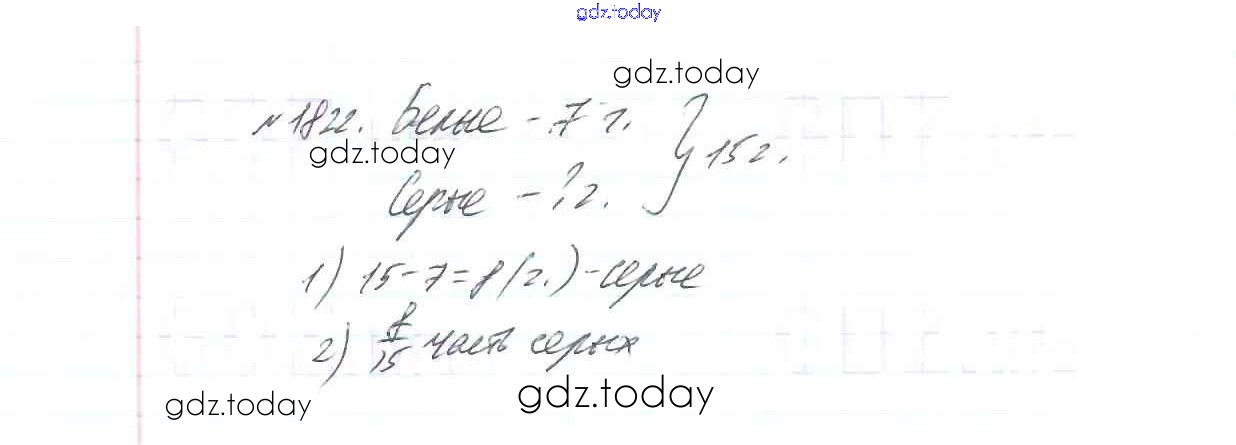 gdz.today
gdz.today
№ 1822. Белые - 7 г. } 15 г.
gdz.today
Серые - ? г.
1) 15 - 7 = 8 (г.) - серые
2) 8/15 часть серых
gdz.today
gdz.today